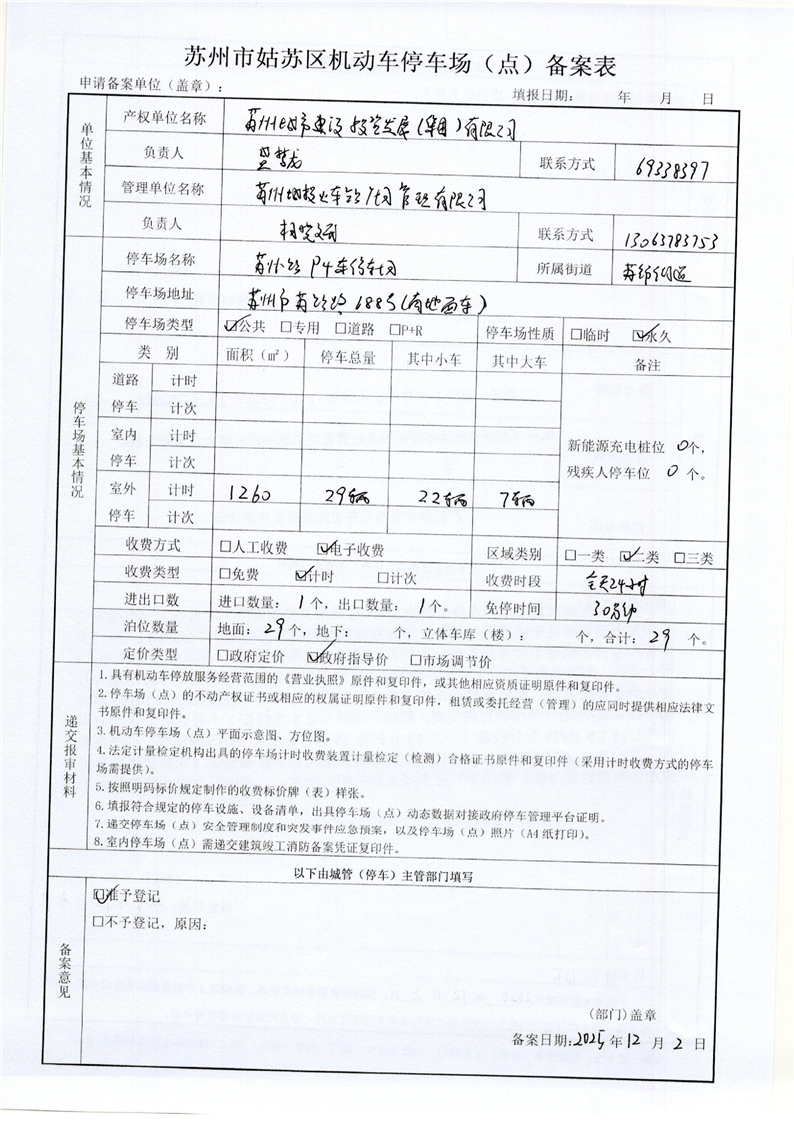 苏州市姑苏区机动车停车场（点）备案表
申请备案单位（盖章）： 填报日期： 年 月 日
单位基本情况
产权单位名称 苏州城市建设投资发展（集团）有限公司
负责人 联系方式 69338397
管理单位名称 苏州城投火车站广场管理有限公司
负责人 联系方式 13063783753
停车场名称 苏州站P4车停车场
所属街道
停车场地址 苏州市苏站路688号
停车场类型 ☑公共 □专用 □道路 □P+R 停车场性质 □临时 ☑永久
停车场基本情况
类 别 面积（㎡） 停车总量 其中小车 其中大车 备注
道路停车 计时
计次
室内停车 计时
计次
新能源充电桩位 0个，
残疾人停车位 0 个。
室外停车 计时 1260 29辆 22辆 7辆
计次
收费方式 □人工收费 ☑电子收费 区域类别 □一类 ☑二类 □三类
收费类型 □免费 ☑计时 □计次 收费时段 全天24小时
进出口数 进口数量：1个，出口数量：1个。 免停时间 30分钟
泊位数量 地面：29个，地下： 个，立体车库（楼）： 个，合计：29 个。
定价类型 □政府定价 ☑政府指导价 □市场调节价
递交报审材料
1.具有机动车停放服务经营范围的《营业执照》原件和复印件，或其他相应资质证明原件和复印件。
2.停车场（点）的不动产权证书或相应的权属证明原件和复印件，租赁或委托经营（管理）的应同时提供相应法律文
书原件和复印件。
3.机动车停车场（点）平面示意图、方位图。
4.法定计量检定机构出具的停车场计时收费装置计量检定（检测）合格证书原件和复印件（采用计时收费方式的停车
场需提供）。
5.按照明码标价规定制作的收费标价牌（表）样张。
6.填报符合规定的停车设施、设备清单，出具停车场（点）动态数据对接政府停车管理平台证明。
7.递交停车场（点）安全管理制度和突发事件应急预案，以及停车场（点）照片（A4纸打印）。
8.室内停车场（点）需递交建筑竣工消防备案凭证复印件。
以下由城管（停车）主管部门填写
备案意见
☑准予登记
□不予登记，原因：
（部门）盖章
备案日期：2025年12月2日